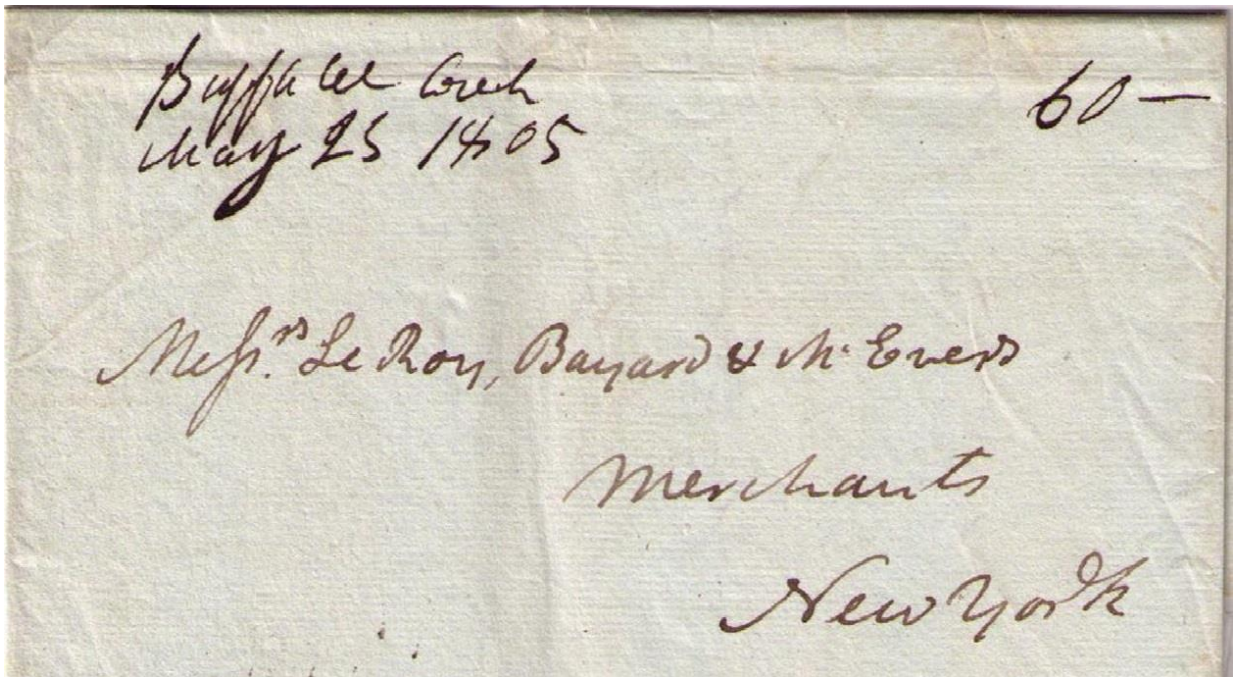 Buffaloe Creek
60 —
May 25 1805
Messrs. Le Roy, Bayard & Mc Evers
Merchants
New York